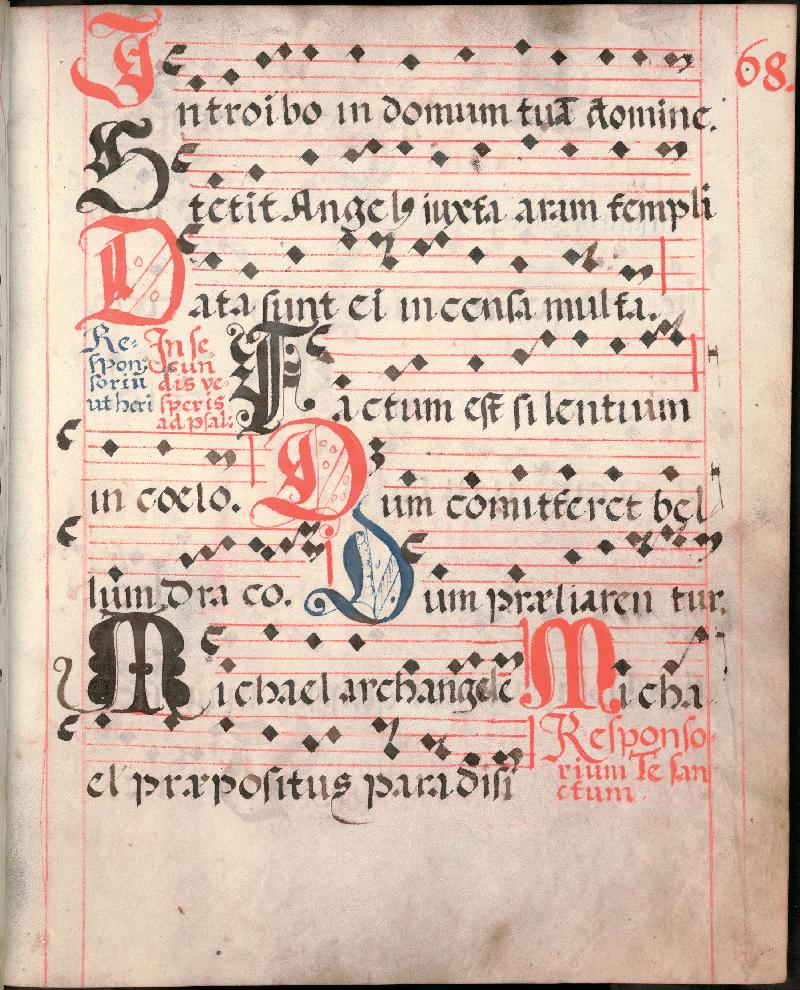 68.
Introibo in domum tuā domine.
Stetit Angelꝰ iuxta aram templi
Data sunt ei incensa multa.
Re-
spon-
soriū
ut heri
In se-
cun
dis ve-
speris
ad psal:
Factum est silentium
in coelo. Dum comitteret bel
lum Dra co. Dum præliaren tur
Michael archangele Micha
el præpositus paradisi
Responso-
rium Te san
ctum